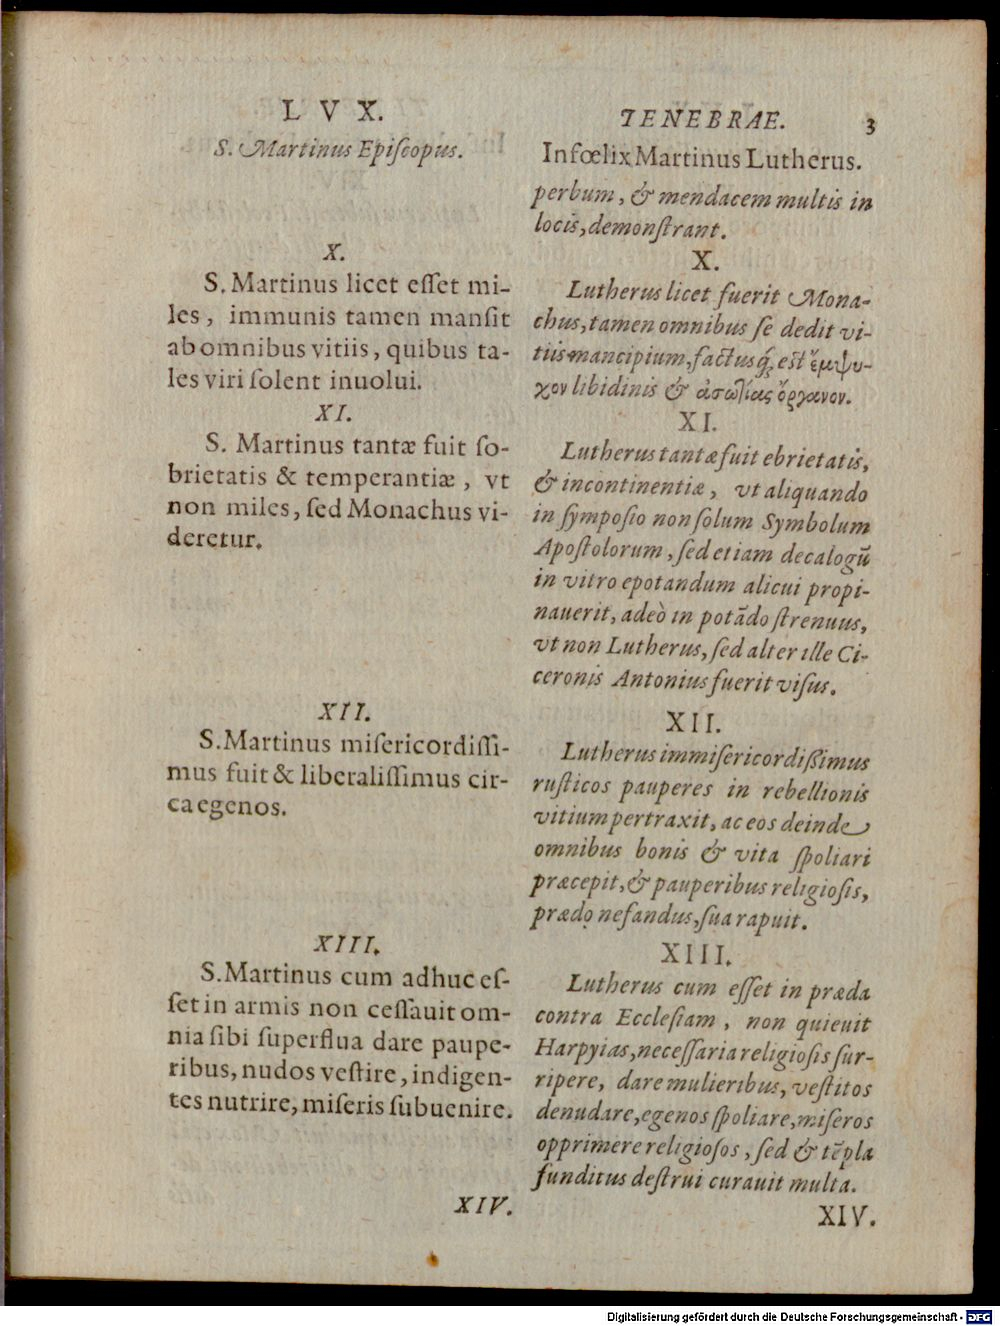 L V X.
S. Martinus Epiſcopus.
X.
S. Martinus licet eſſet mi-
les, immunis tamen manſit
ab omnibus vitiis, quibus ta-
les viri ſolent inuolui.
XI.
S. Martinus tantæ fuit ſo-
brietatis & temperantiæ, vt
non miles, ſed Monachus vi-
deretur.
XII.
S. Martinus miſericordiſſi-
mus fuit & liberaliſſimus cir-
ca egenos.
XIII.
S. Martinus cum adhuc eſ-
ſet in armis non ceſſauit om-
nia ſibi ſuperflua dare paupe-
ribus, nudos veſtire, indigen-
tes nutrire, miſeris ſubuenire.
XIV.
TENEBRAE. 3
Infœlix Martinus Lutherus.
perbum, & mendacem multis in
locis, demonſtrant.
X.
Lutherus licet fuerit Mona-
chus, tamen omnibus ſe dedit vi-
tiis mancipium, factusq́; est ἔμψυ-
χον libidinis & ἀσωτίας ὄργανον.
XI.
Lutherus tantæ fuit ebrietatis,
& incontinentiæ, vt aliquando
in ſympoſio non ſolum Symbolum
Apoſtolorum, ſed etiam decalogũ
in vitro epotandum alicui propi-
nauerit, adeò in potãdo ſtrenuus,
vt non Lutherus, ſed alter ille Ci-
ceronis Antonius fuerit viſus.
XII.
Lutherus immiſericordißimus
ruſticos pauperes in rebellionis
vitium pertraxit, ac eos deinde
omnibus bonis & vita ſpoliari
præcepit, & pauperibus religioſis,
prædo nefandus, ſua rapuit.
XIII.
Lutherus cum eſſet in præda
contra Eccleſiam, non quieuit
Harpyias, neceſſaria religioſis ſur-
ripere, dare mulieribus, veſtitos
denudare, egenos ſpoliare, miſeros
opprimere religioſos, ſed & tẽpla
funditus deſtrui curauit multa.
XIV.
Digitalisierung gefördert durch die Deutsche Forschungsgemeinschaft - DFG